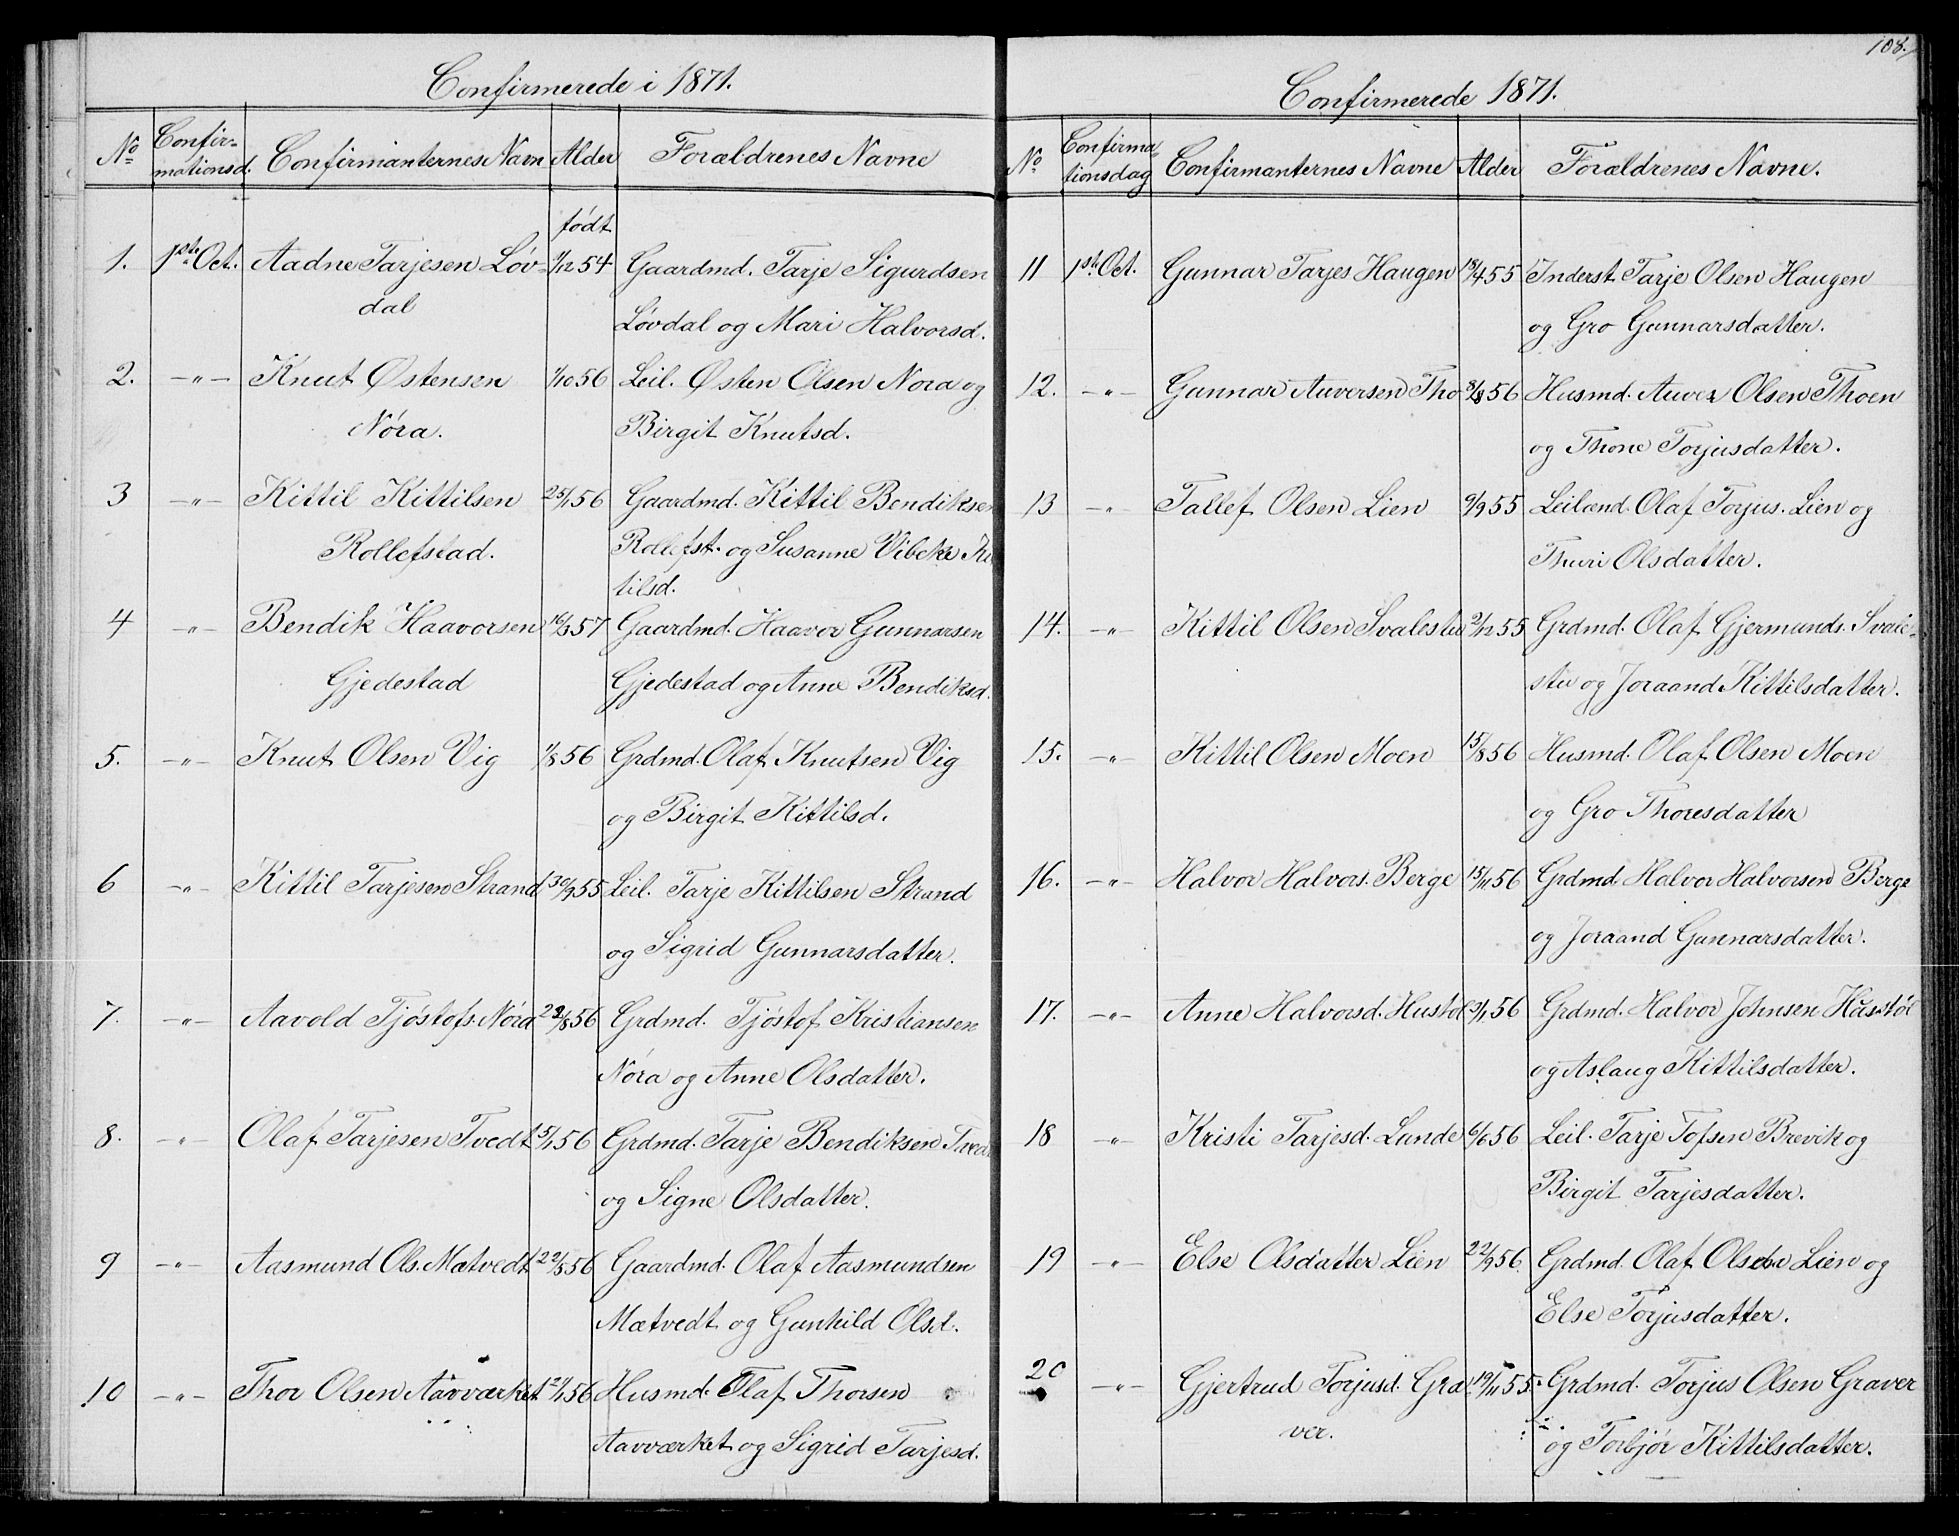 Confirmerede i 1871.
No Confir- Confirmanternes Navn Alder Forældrenes Navne
mationsd.
født
1. 1ste Oct. Aadne Tarjesen Løv- 1/12 54 Gaardmd. Tarje Sigurdsen
dal Løvdal og Mari Halvorsd.
2. -"- Knut Østensen 1/10 56 Leil. Østen Olsen Nora og
Nóra. Birgit Knutsd.
3 -"- Kittil Kittilsen 25/1 56 Gaardmd. Kittil Bendiksen
Rollefstad. Rollefst. og Susanne Vibeke Kit
tilsd.
4 -"- Bendik Haavorsen 16/3 57 Gaardmd. Haavor Gunnarsen
Gjedestad Gjedestad og Anne Bendiksd.
5. -"- Knut Olsen Vig 1/8 56 Grdmd. Olaf Knutsen Vig
og Birgit Kittilsd.
6 -"- Kittil Tarjesen Strand 30/9 55 Leil. Tarje Kittilsen Strand
og Sigrid Gunnarsdatter.
7. -"- Aavold Tjöstofs. Nóra 22/8 56 Grdmd. Tjöstof Kristiansen
Nóra og Anne Olsdatter.
8. -"- Olaf Tarjesen Tvedt 5/1 56 Grdmd. Tarje Bendiksen Tvedt
og Signe Olsdatter.
9 -"- Aasmund Ols. Mætvedt 22/5 56 Gaardmd. Olaf Aasmundsen
Mætvedt og Gunhild Olsd.
10 -"- Thor Olsen Aavværket 12/1 56 Husmd. Olaf Thorsen
Aavværket og Sigrid Tarjesd.
108.
Confirmerede 1871.
No Confirma- Confirmanternes Navne Alder Forældrenes Navne.
tionsdag
11 1ste Oct. Gunnar Tarjes Haugen 18/4 55 Inderst Tarje Olsen Haugen
og Gro Gunnarsdatter.
12. -"- Gunnar Auversen Tho 56 Husmd. Auver Olsen Thoen
og Thone Torjusdatter.
13 -"- Tallef Olsen Lien 9/9 55 Leilænd. Olaf Torjus. Lien og
Thuri Olsdatter.
14. -"- Kittil Olsen Svalestu 2/12 55 Grdmd. Olaf Gjermunds. Svale-
stu og Joraand Kittilsdatter.
15. -"- Kittil Olsen Moen 15/8 56 Husmd. Olaf Olsen Moen
og Gro Thoresdatter
16. -"- Halvor Halvors. Berge 15/11 56 Grdmd. Halvor Halvorsen Berge
og Joraand Gunnarsdatter.
17. -"- Anne Halvorsd. Hustøl 3/1 56 Grdmd. Halvor Johnsen Hustøl
og Aslaug Kittilsdatter.
18 -"- Kristi Tarjesd. Lunde 6/6 56 Leil. Tarje Tofsen Brevik og
Birgit Tarjesdatter.
19 -"- Else Olsdatter Lien 22/9 56. Grdmd. Olaf Olsen Lien og
Else Torjusdatter.
20 -"- Gjertrud Torjusd. Gra 19/11 55. Grdmd. Torjus Olsen Graver
ver. og Torbjør Kittilsdatter.